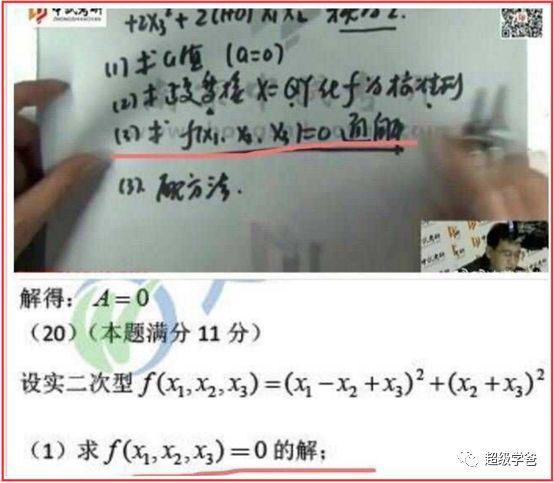 中试考研
ZHONGSHIKAOYAN
+2x₃²+2(1+a)x₁x₂ 秩为2.
(1) 求a值 (a=0)
(2) 求正交变换 x=QY化f为标准型
(3) 求 f(x₁、x₂、x₃)=0 的解
(3). 配方法.
解得：A=0
（20）（本题满分 11 分）
设实二次型 f(x₁,x₂,x₃)=(x₁-x₂+x₃)²+(x₂+x₃)²
（1）求 f(x₁,x₂,x₃)=0 的解；
超级学爸